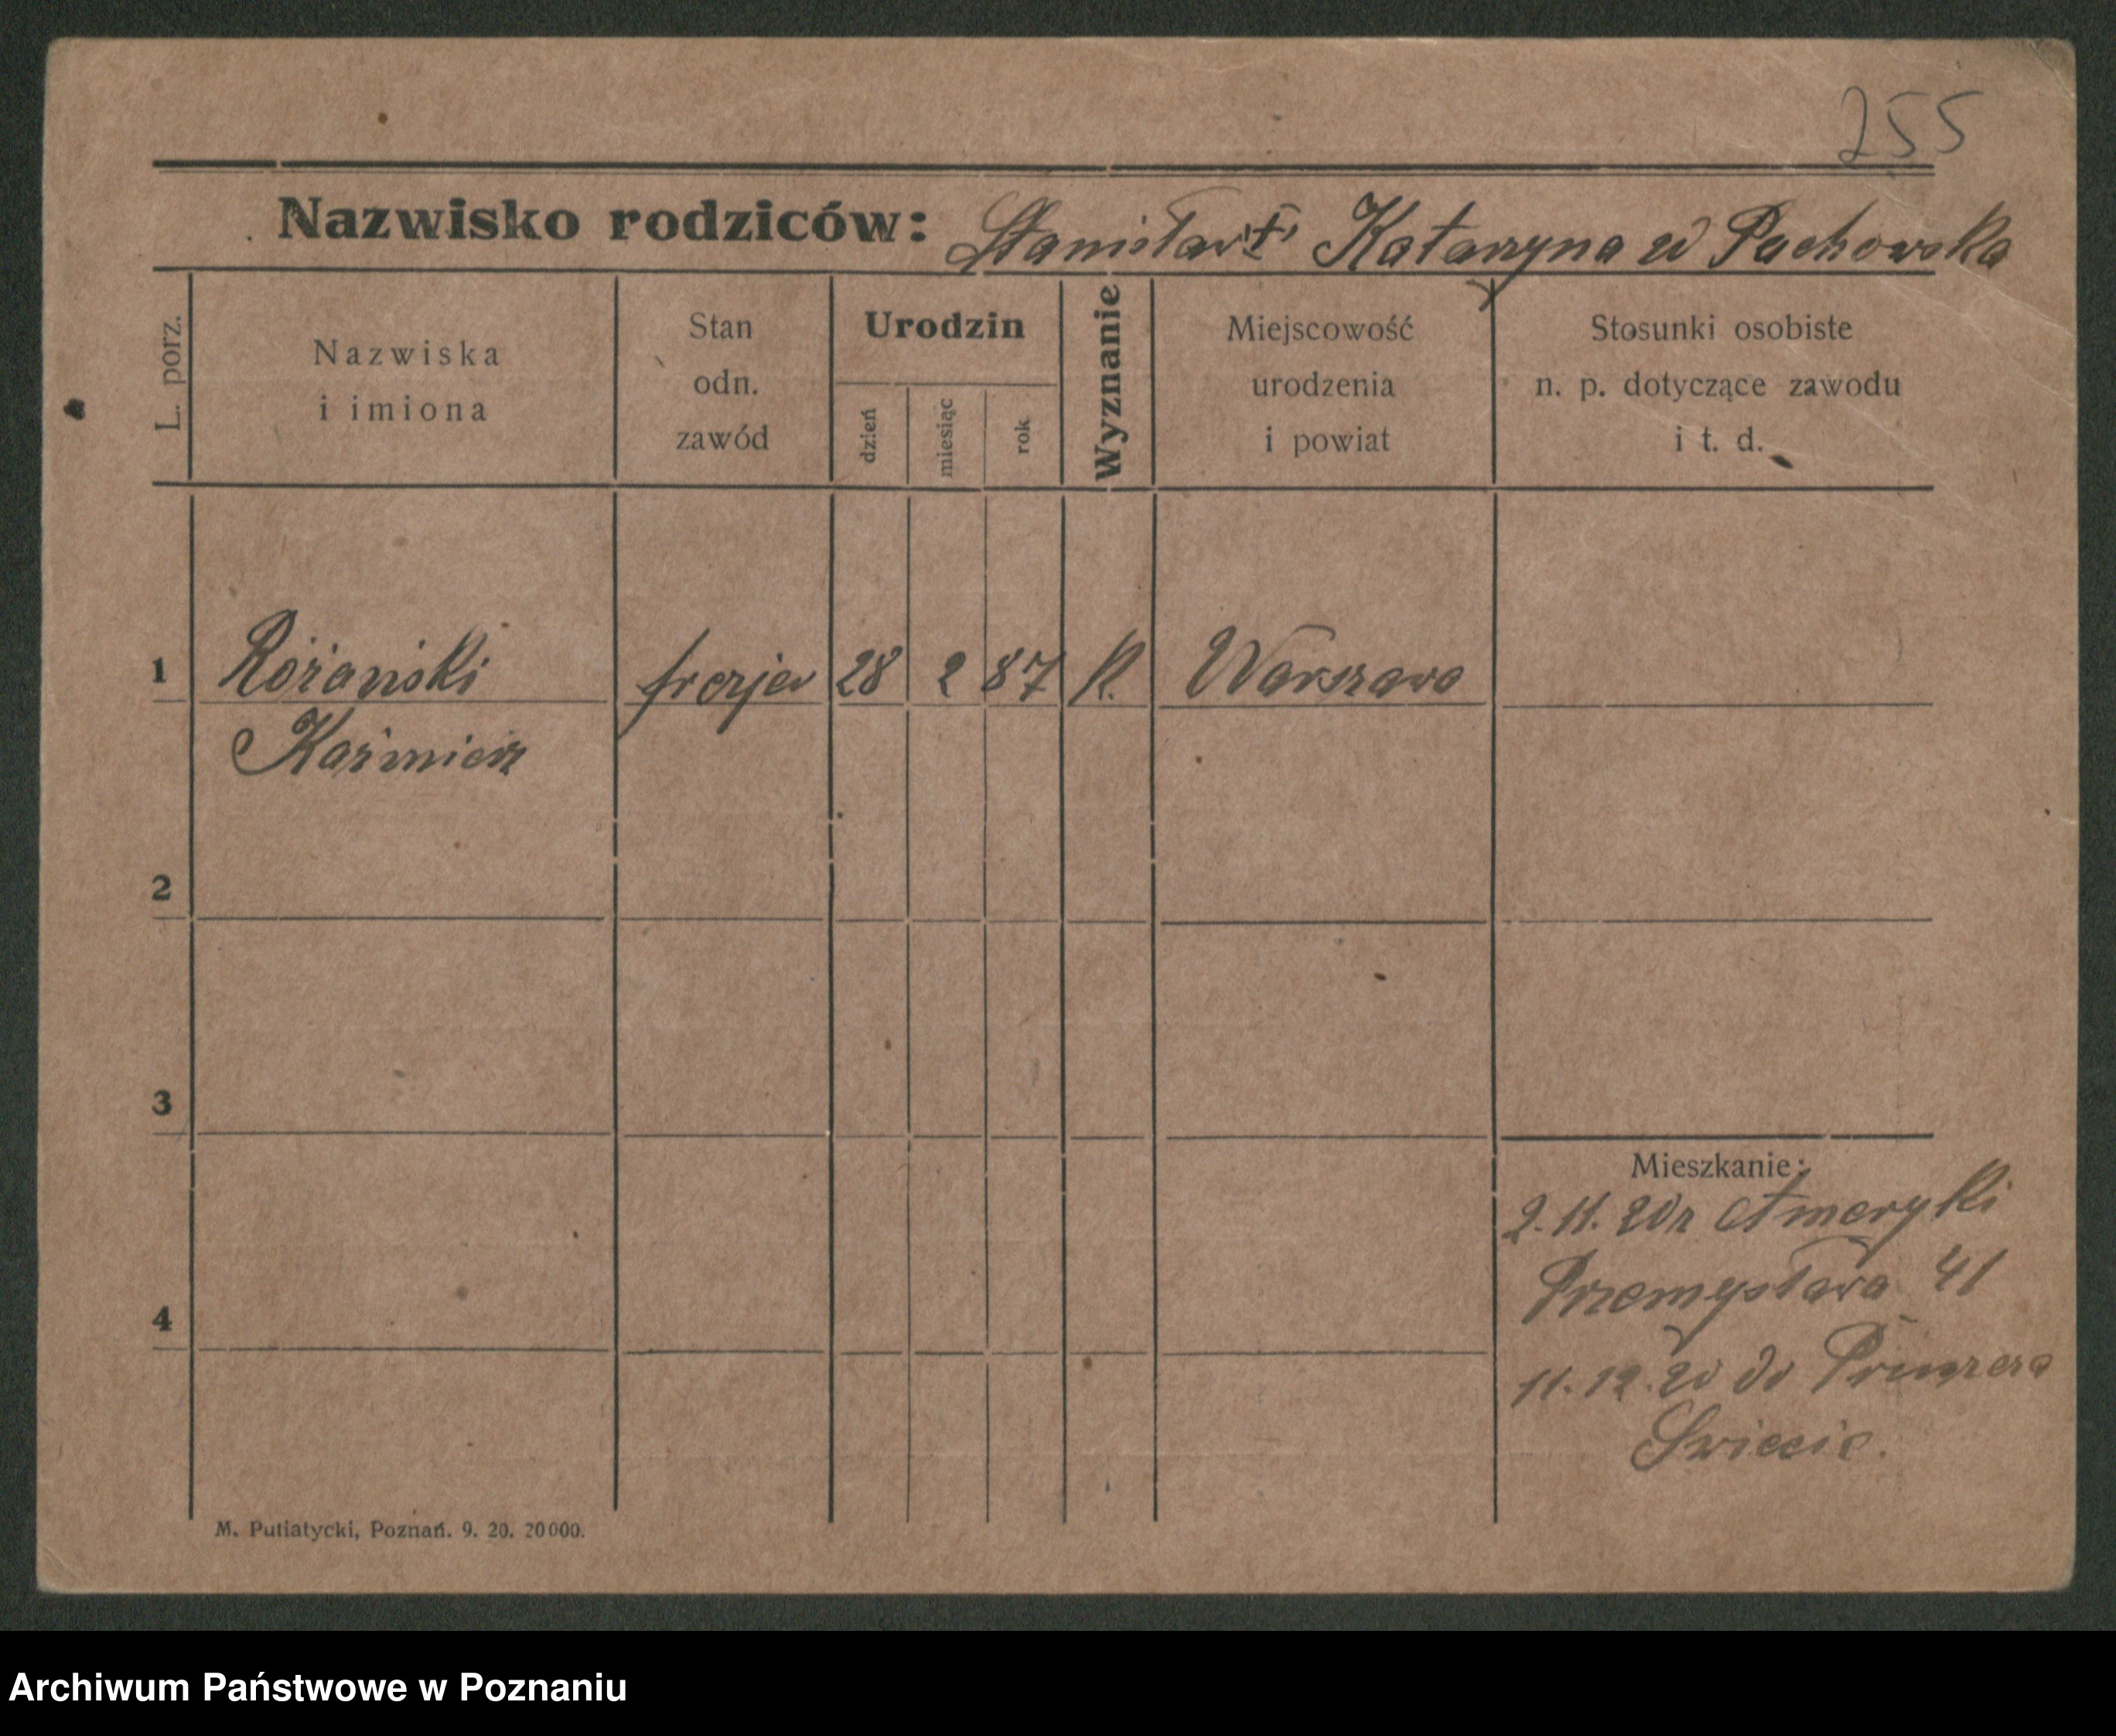 255
Nazwisko rodziców: Stanisław † Katarzyna u Pachowska
L. porz.
Nazwiska
i imiona
Stan
odn.
zawód
Urodzin
dzień
miesiąc
rok
Wyznanie
Miejscowość
urodzenia
i powiat
Stosunki osobiste
n. p. dotyczące zawodu
i t. d.
1 Rożański fryzjer 28 2 87 K. Warszawa
Kaźmierz
2
3
4
Mieszkanie:
2.11.20 z Ameryki
Przemysława 41
11.12.20 do
Swiecie.
M. Putiatycki, Poznań. 9. 20. 20000.
Archiwum Państwowe w Poznaniu